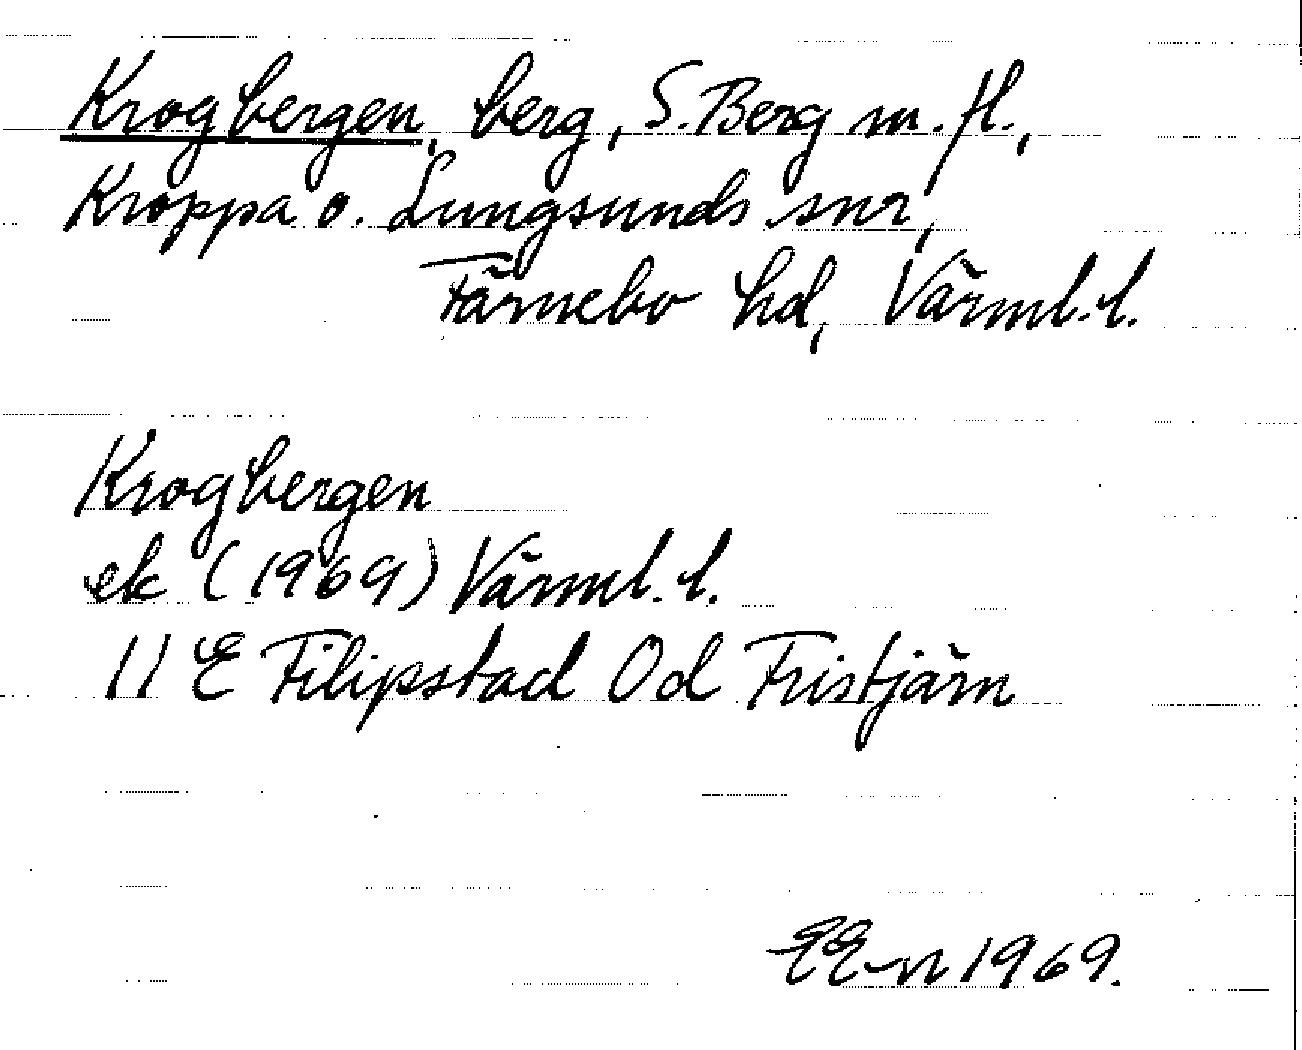 Krogbergen, berg, S. Berg m. fl.,
Kroppa o. Lungsunds snr,
Färnebo hd, Värml. l.
Krogbergen
ek (1969) Värml. l.
11 E Filipstad Od Fristjärn
EE-n 1969.